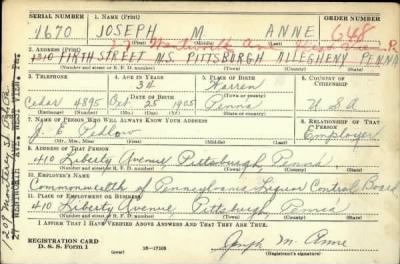 SERIAL NUMBER 1. NAME (Print) ORDER NUMBER
1670 JOSEPH M ANNE 648
(First) (Middle) (Last)
27 Wentworth Ave
2. ADDRESS (Print)
1310 FIFTH STREET N.S. PITTSBURGH ALLEGHENY PENNA
(Number and street or R. F. D. number) (Town) (County) (State)
3. TELEPHONE 4. AGE IN YEARS 5. PLACE OF BIRTH 6. COUNTRY OF CITIZENSHIP
34 Warren
DATE OF BIRTH (Town or county)
Cedar 4895 Oct 25 1905 Penna U.S.A
(Exchange) (Number) (Mo.) (Day) (Yr.) (State or country)
7. NAME OF PERSON WHO WILL ALWAYS KNOW YOUR ADDRESS 8. RELATIONSHIP OF THAT PERSON
J. E. Pedlow Employer
(Mr., Mrs., Miss) (First) (Middle) (Last)
9. ADDRESS OF THAT PERSON
410 Liberty Avenue, Pittsburgh, Penna
(Number and street or R. F. D. number) (Town) (County) (State)
10. EMPLOYER'S NAME
Commonwealth of Pennsylvania Liquor Control Board
11. PLACE OF EMPLOYMENT OR BUSINESS
410 Liberty Avenue, Pittsburgh, Penna
(Number and street or R. F. D. number) (Town) (County) (State)
I AFFIRM THAT I HAVE VERIFIED ABOVE ANSWERS AND THAT THEY ARE TRUE.
REGISTRATION CARD
D. S. S. Form 1 (over) 16—17105 Joseph M. Anne
(Registrant's signature)
1209 Monterey St
27 WENTWORTH AVE. WEST VIEW, PA.